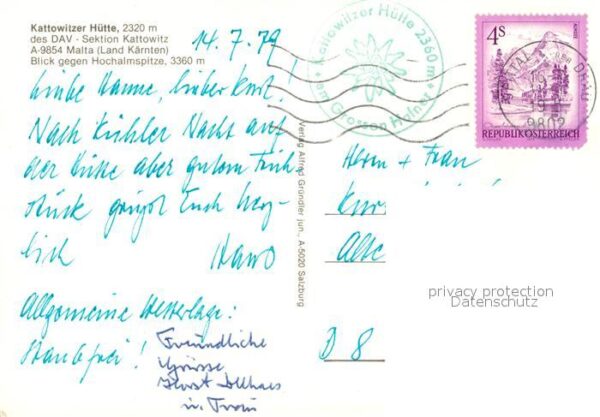 Kattowitzer Hütte, 2320 m
des DAV - Sektion Kattowitz
A-9854 Malta (Land Kärnten)
Blick gegen Hochalmspitze, 3360 m
14.7.79
Liebe Hanne, lieber Kurt!
Nach kühler Nacht auf
der Hütte aber gutem Früh-
stück grüßt Euch herz-
lich Hawo
Allgemeine Wetterlage:
Staubfrei!
Freundliche
Grüsse
Horst
u. Frau
Verlag Alfred Gründler jun., A-5020 Salzburg
Kattowitzer Hütte 2360 m
am Grossen Hafner
4S
REPUBLIK ÖSTERREICH
9802
Herrn + Frau
Kur
Alte
D 8
privacy protection
Datenschutz